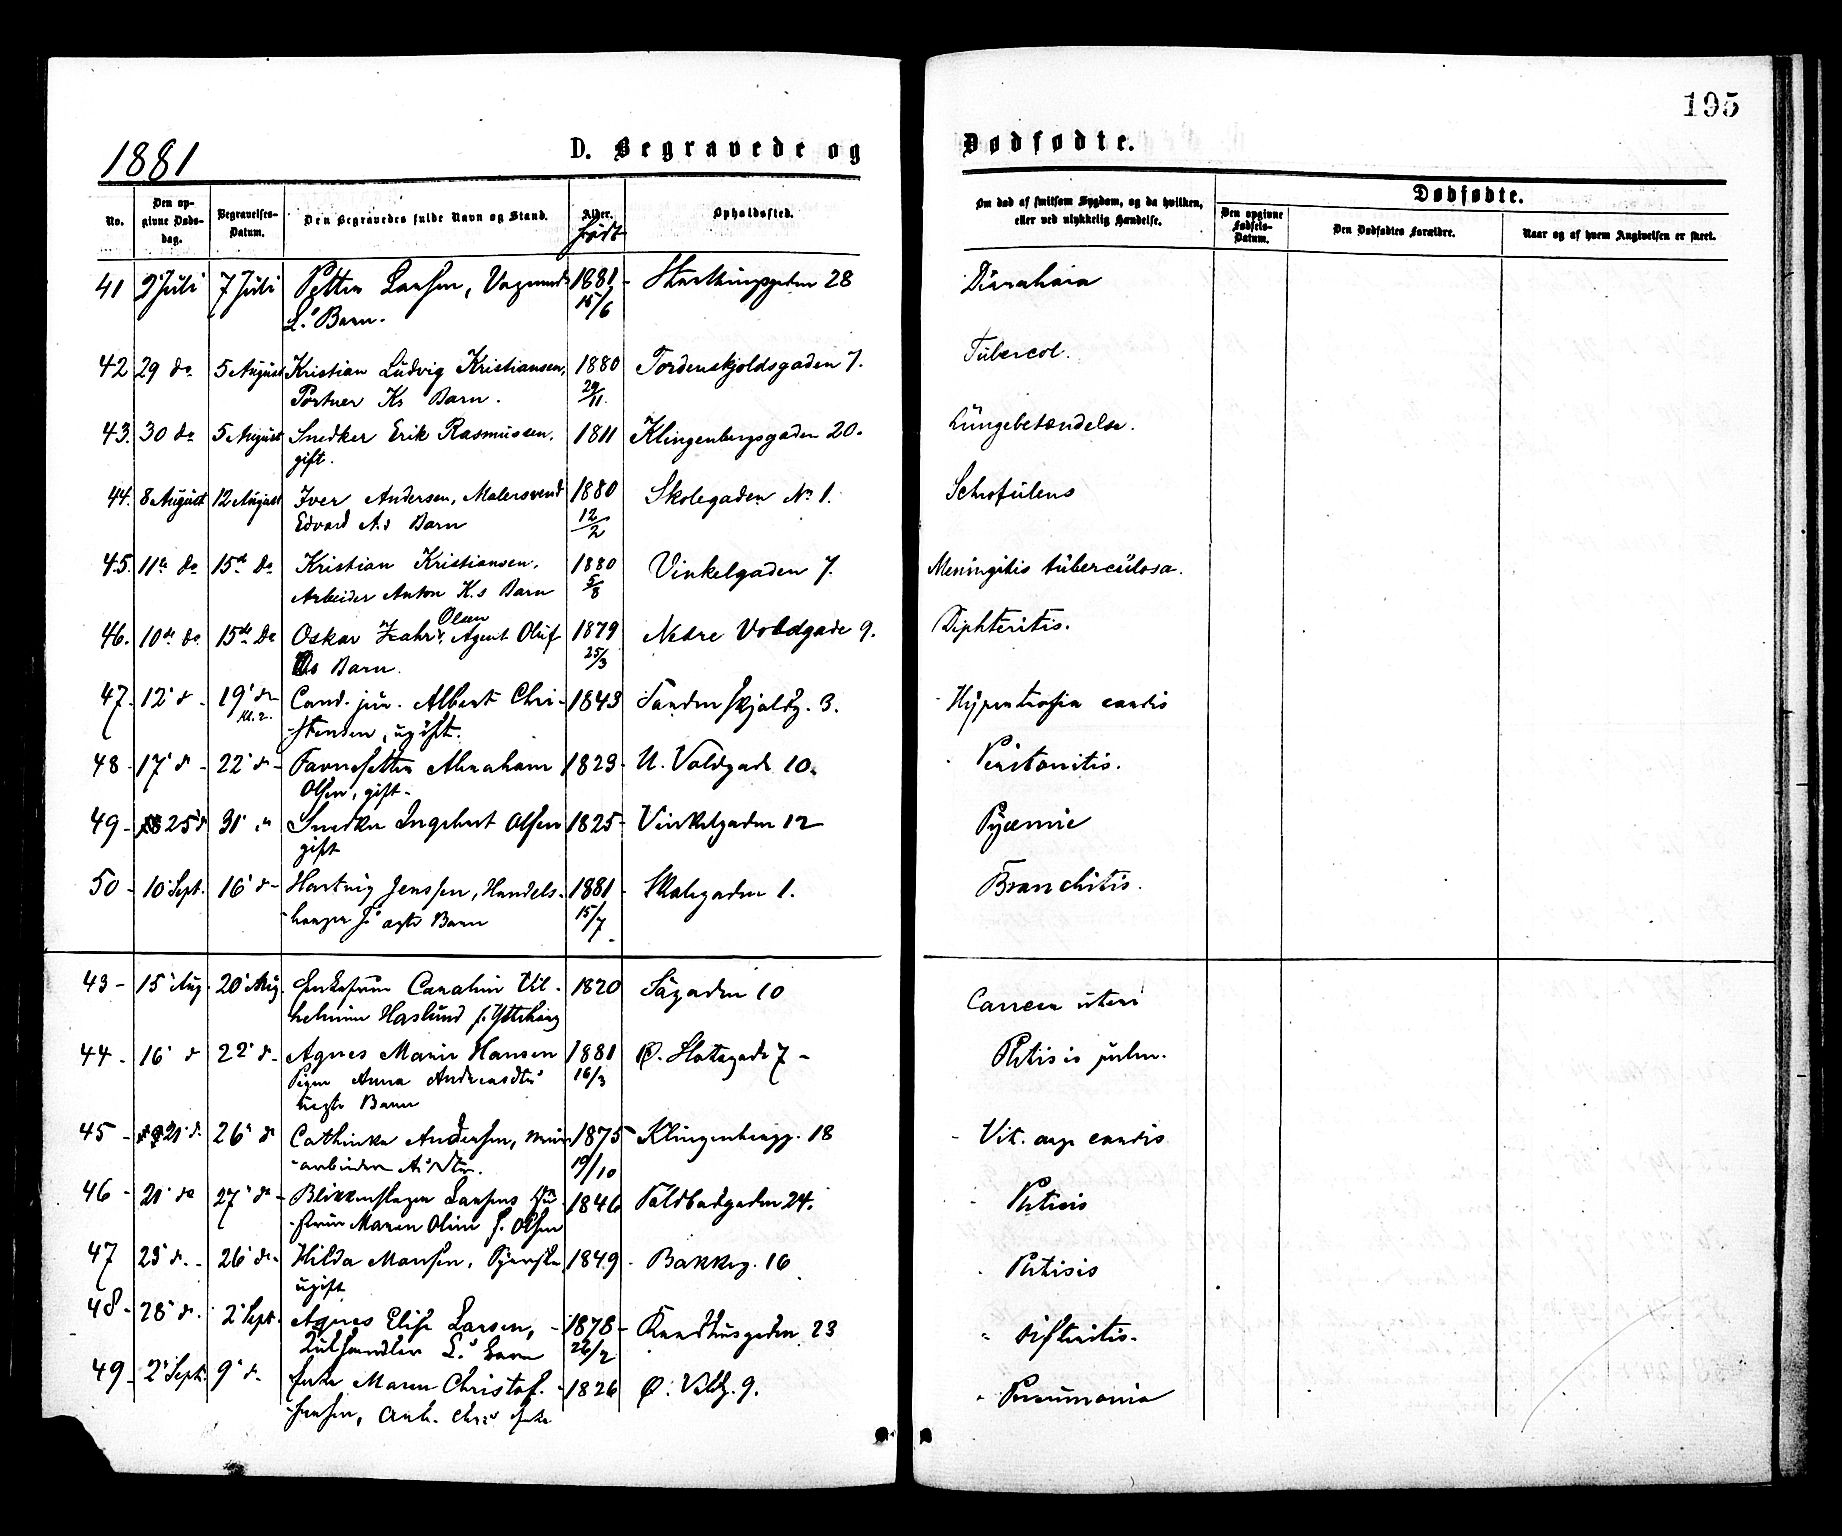 195
1881
D. Begravede og Dødfødte.
No. Den opgivne Dødsdag. Begravelses-Datum. Den Begravedes fulde Navn og Stand. Alder. født Opholdssted. Om død af smitsom Sygdom, og da hvilken, eller ved ulykkelig Hændelse. Dødfødte.
Den opgivne Fødsels-Datum. Den Dødfødtes Forældre. Naar og af hvem Angivelsen er skeet.
41 2 Juli 7 Juli Petter Larsen, 1881 28
L.s Barn. 15/6
42 29 do 5 August Kristian Ludvig Kristiansen, 1880 Tordenskjoldsgaden 7. Tubercol.
Portner Ks Barn. 29/11.
43. 30 do 5 August Snedker Erik Rasmussen. 1811 Klingenbergsgaden 20. Lungebetændelse.
gift.
44. 8 August 12 August Iver Andersen, Malersvend 1880 Skolegaden No 1. Schrofuløs
Edvard A.s Barn 12/2
45. 11te do 15de do Kristian Kristiansen, 1880 Vinkelgaden 7. Meningitis tuberculosa.
Arbeider Anton K.s Barn 5/8
Olsen
46. 10de do 15de do Oskar Agent Oluf 1879 Nedre Voldgade 9. Diphteritis.
Os Barn. 25/3
47. 12' d. 19' do Cand. jur. Albert Chri- 1843 Tordenskjoldg. 3. Hypertrofia cordis
Kl. 2. stensen, ugift.
48 - 17' d - 22' d - Abraham 1829 N. Voldgade 10. Peritonitis.
Olsen, gift -
49 - 25' d 31' Snedker Ingebret Olsen 1825 - Vinkelgaden 12 Pyæmie
gift
50 - 10' Sept. 16' d - Hartvig Jenssen, Handels- 1881 - Skolegaden 1. Bronchitis.
J.s ægte Barn 15/7
43 - 15' Aug. 20' Aug. Enkefrue Caroline Vil- 1820 Søgaden 10 Cancer uteri
helmine Haslund f.
44 - 16' d 22' d - Agnes Marie Hansen 1881 Ø. Slotsgade 7 - Phtisis pulm.
Pigen Anna 16/3
uægte Barn
45 - 21' d. 26' d Cathinka Andersen, 1875 - Klingenbergg. 18 Vit. org. cordis
arbeider A.s Dtr. 19/10
46 - 21' do 27' do - Blikkenslager Larsens Hu- 1846 24. Phtisis
strue Maren Oline f. Olsen
47 23' d. - 26' do - Hilda 1849 - Bakkeg. 16 Phtisis
ugift
48 - 28' d. 2' Sept. Agnes Elise Larsen, - 1878 - 23 Difteritis.
L.s Barn 26/2
49 - 2' Sept. 9' d. Enke Maren Christof- 1826 Ø. Voldg. 9. Pneumonia
fersen, Arb. Chr.s Enke